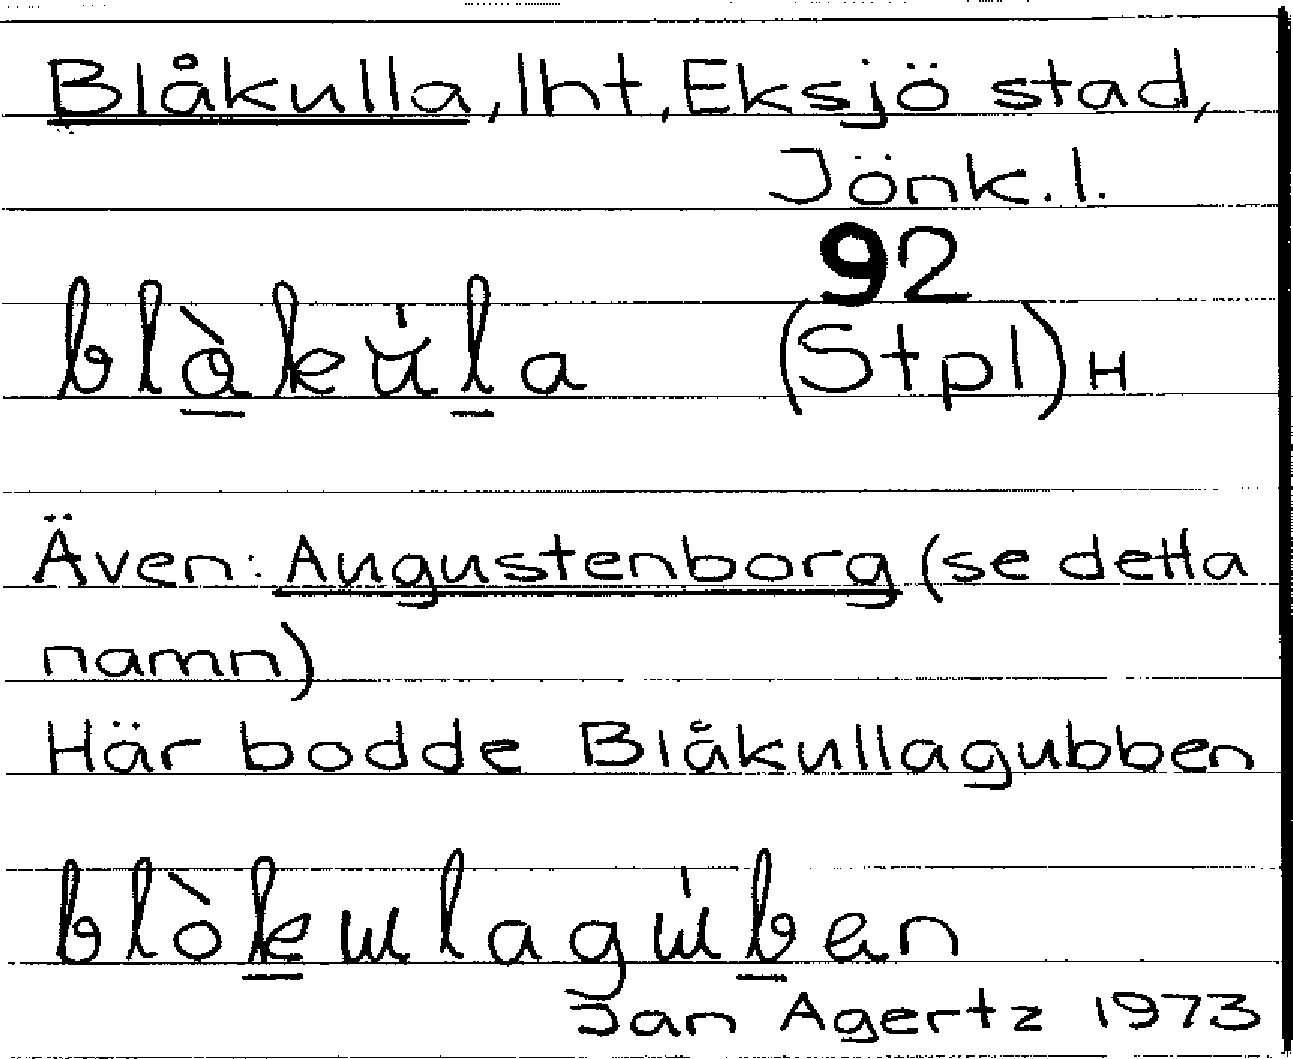 Blåkulla, lht, Eksjö stad,
Jönk. l.
92
blàkŭ́la (Stpl) H
Även: Augustenborg (se detta
namn)
Här bodde Blåkullagubben
blòkɯlagɯ́ben
Jan Agertz 1973